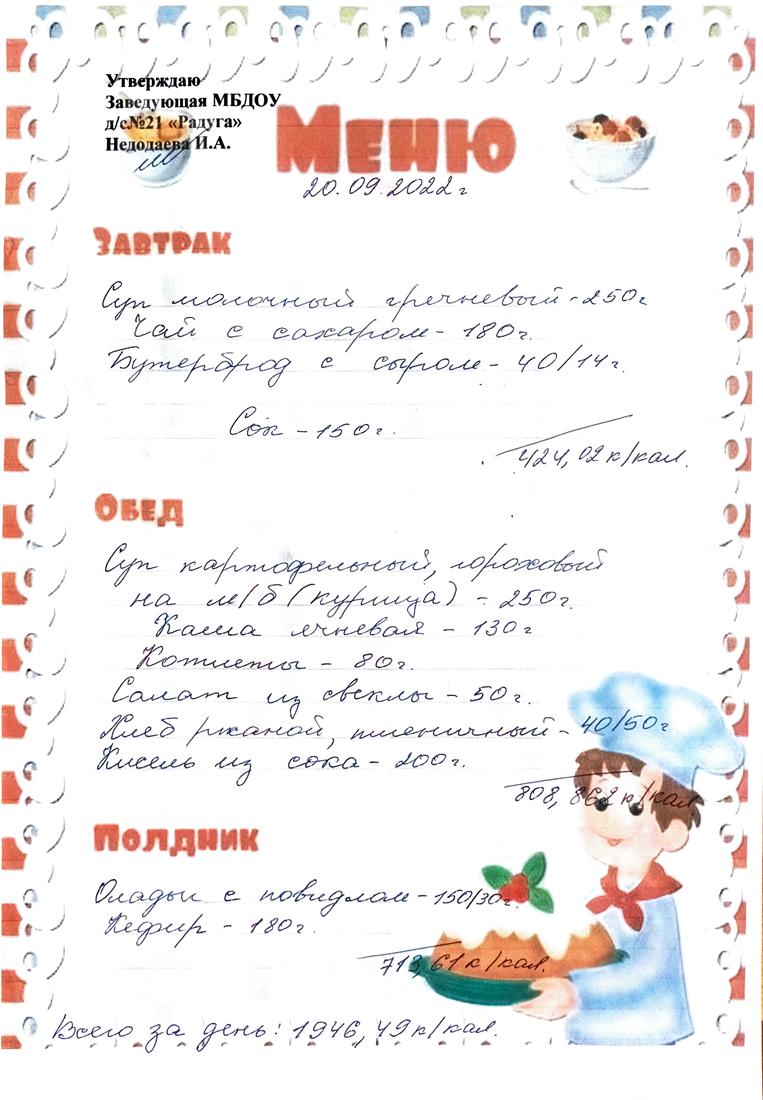 Утверждаю
Заведующая МБДОУ
д/с№21 «Радуга»
Недодаева И.А.
Меню
20.09.2022г
Завтрак
Суп молочный гречневый - 250г
Чай с сахаром - 180г.
Бутерброд с сыром - 40/14г.
Сок - 150г.
424,02 к/кал.
Обед
Суп картофельный, гороховый
на м/б (курица) - 250г.
Каша ячневая - 130г
Котлеты - 80г.
Салат из свеклы - 50г.
Хлеб ржаной, пшеничный - 40/50г
Кисель из сока - 200г.
808,862 к/кал
Полдник
Оладьи с повидлом - 150/30г.
Кефир - 180г.
713,61 к/кал.
Всего за день: 1946,49 к/кал.